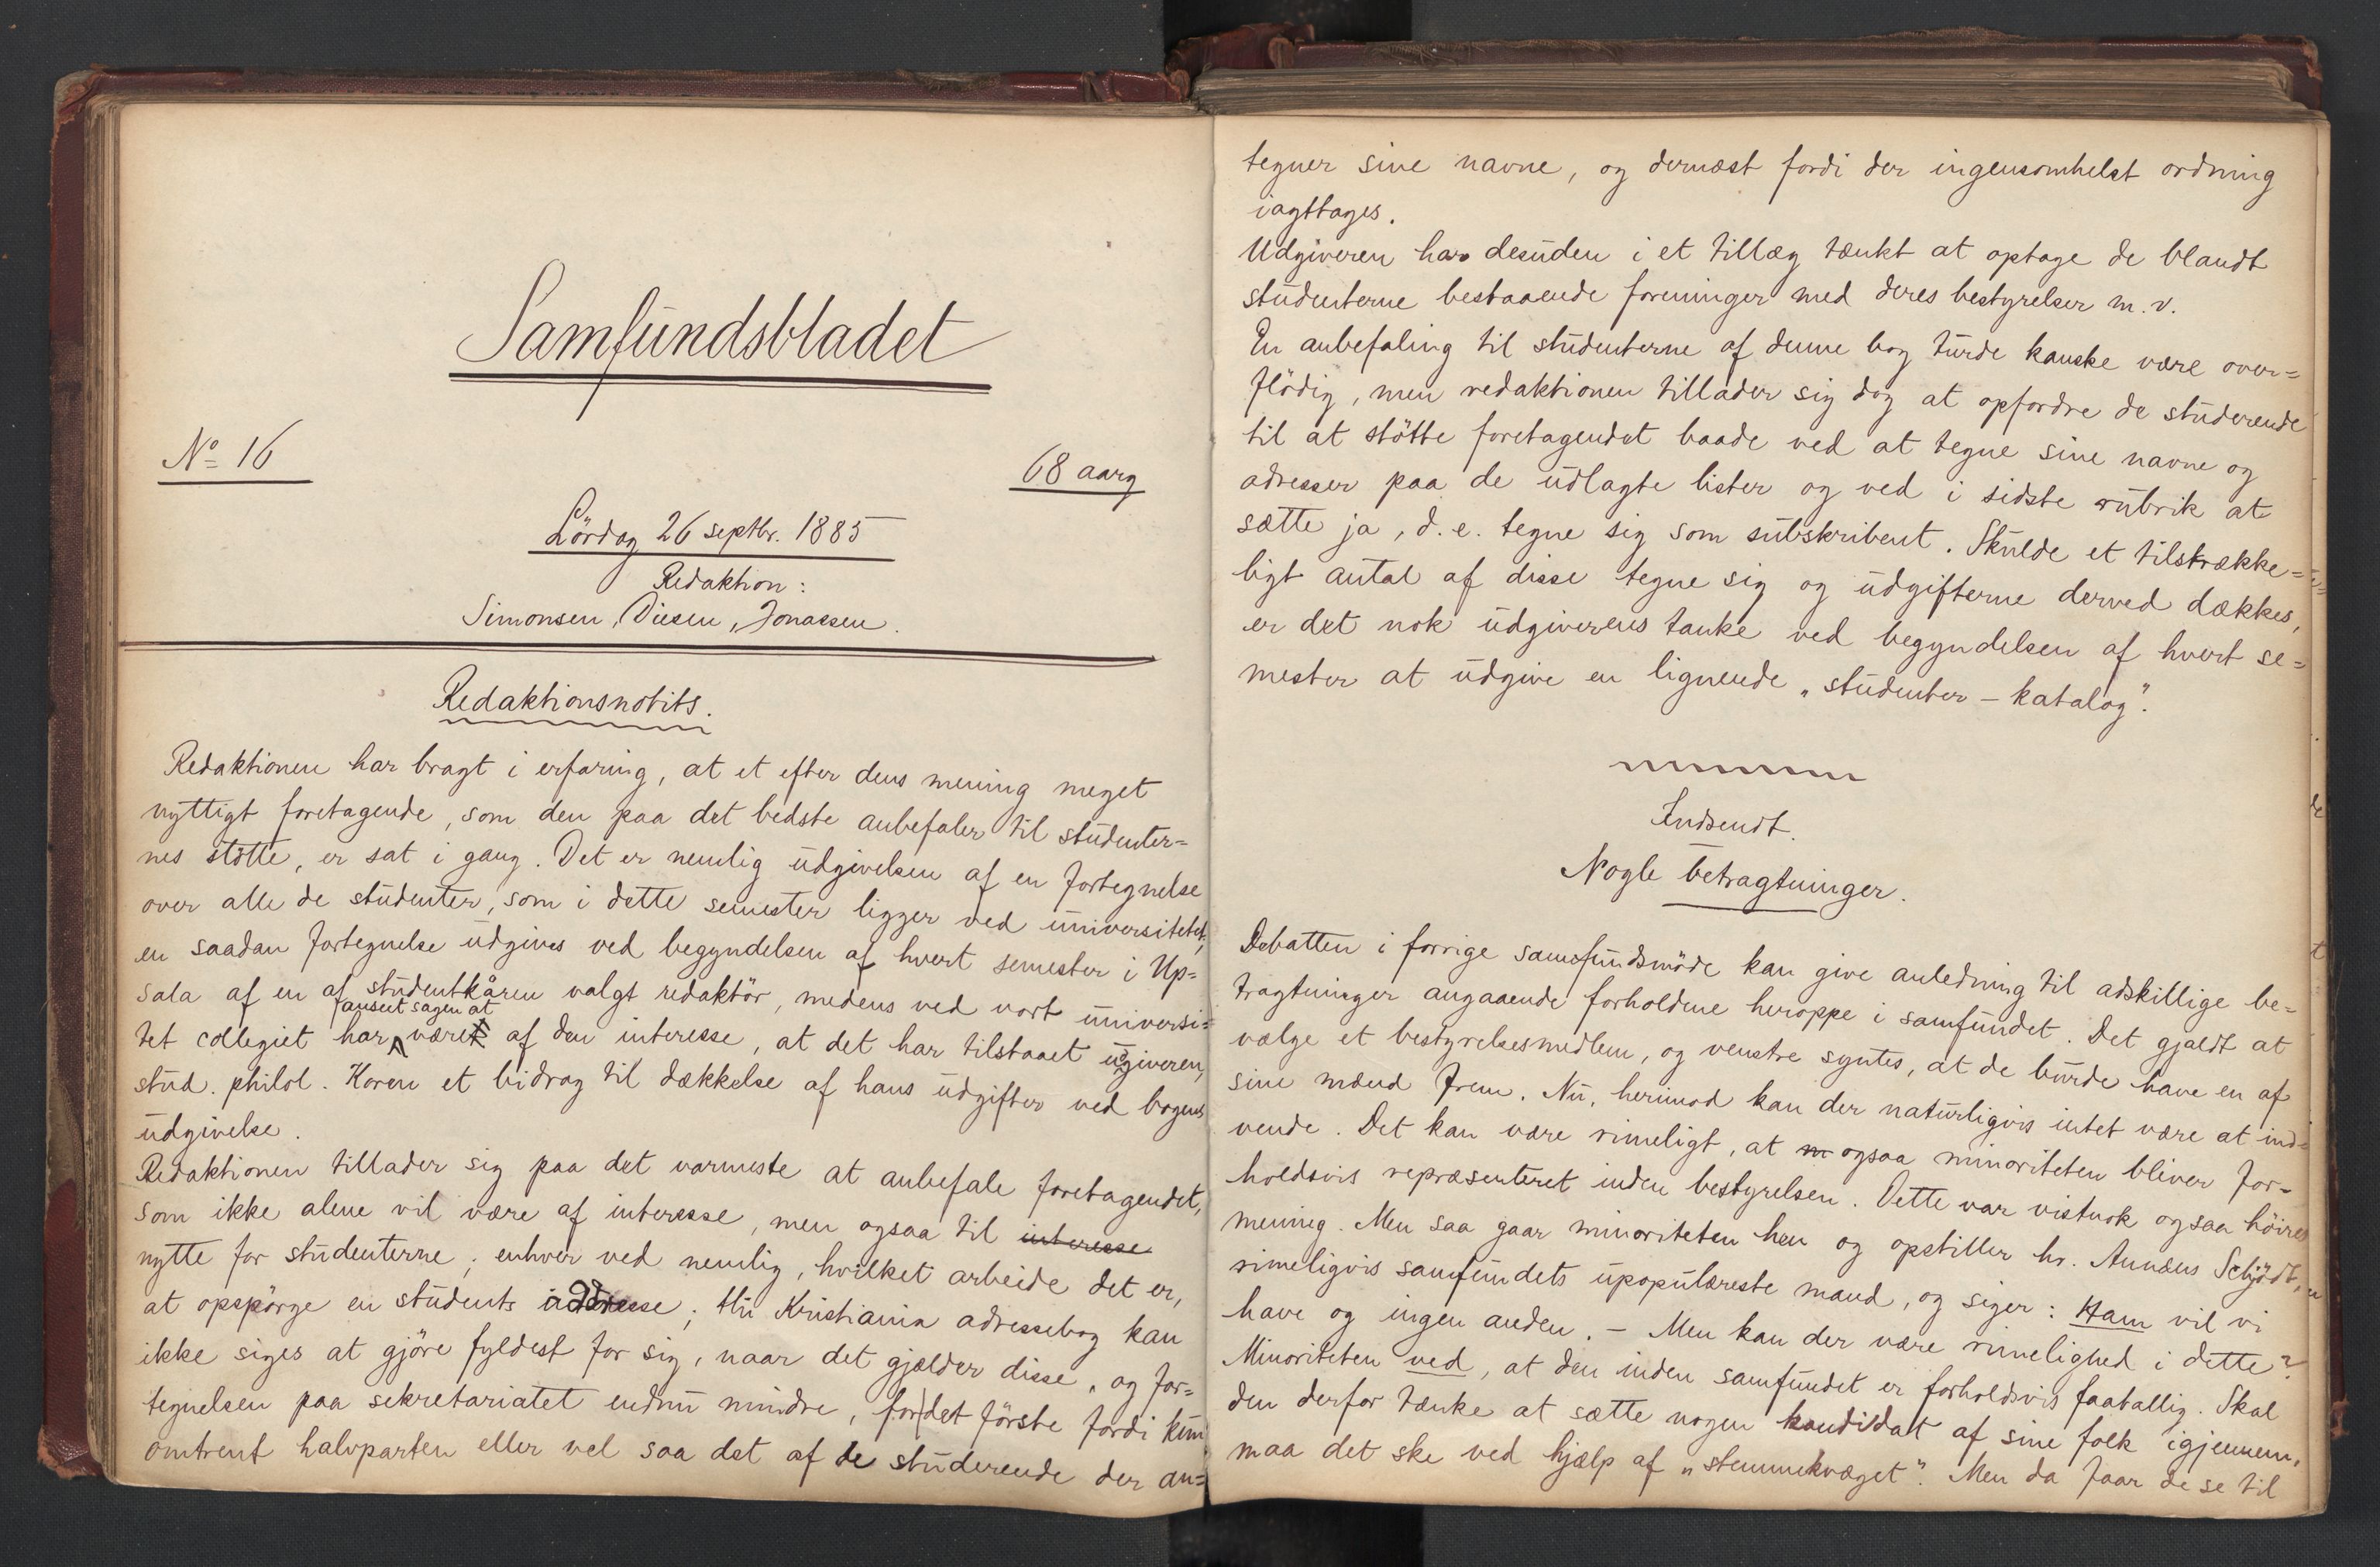 Samfundsbladet
No 16
68 aarg
Lördag 26 septbr. 1885
Redaktion:
Simonsen, Diesen, Jonassen.
Redaktionsnotits.
Redaktionen har bragt i erfaring, at et efter dens mening meget
nyttigt foretagende, som den paa det bedste anbefaler til studenter=
nes stötte, er sat i gang. Det er nemlig udgivelsen af en fortegnelse
over alle de studenter, som i dette semester ligger ved universitetet;
en saadan fortegnelse udgives ved begyndelsen af hvert semester i Up=
sala af en af studentkåren valgt redaktör, medens ved vort universi=
tet collegiet har anseet sagen at være af den interesse, at det har tilstaaet udgiveren,
stud. philol. Koren et bidrag til dækkelse af hans udgifter ved bogens
udgivelse.
Redaktionen tillader sig paa det varmeste at anbefale foretagendet,
som ikke alene vil være af interesse, men ogsaa til interesse
nytte for studenterne; enhver ved nemlig, hvilket arbeide det er,
at opspörge en students addresse; thi Kristiania adressebog kan
ikke siges at gjöre fyldest for sig, naar det gjælder disse, og for=
tegnelsen paa sekretariatet endnu mindre, for det förste fordi kun
omtrent halvparten eller vel saa det af de studerende der an=
tegner sine navne, og dernæst fordi der ingensomhelst ordning
iagttages.
Udgiveren har desuden i et tillæg tænkt at optage de blandt
studenterne bestaaende foreninger med deres bestyrelser m.v.
En anbefaling til studenterne af denne bog turde kanske være over=
flödig, men redaktionen tillader sig dog at opfordre de studerende
til at stötte foretagendet baade ved at tegne sine navne og
adresser paa de udlagte lister og ved i sidste rubrik at
sætte ja, d.e. tegne sig som subskribent. Skulde et tilstrække=
ligt antal af disse tegne sig og udgifterne derved dækkes,
er det nok udgiverens tanke ved begyndelsen af hvert se=
mester at udgive en lignende „studenter-katalog“.
Indsendt.
Nogle betragtninger.
Debatten i forrige samfundsmöde kan give anledning til adskillige be=
tragtninger angaaende forholdene heroppe i samfundet. Det gjaldt at
vælge et bestyrelsesmedlem, og venstre syntes, at de burde have en af
sine mænd frem. Nu, herimod kan der naturligvis intet være at ind=
vende. Det kan være rimeligt, at m ogsaa minoriteten bliver for=
holdsvis repræsenteret inden bestyrelsen. Dette var vistnok ogsaa höires
mening. Men saa gaar minoriteten hen og opstiller hr. Annæus Schjödt,
rimeligvis samfundets upopulæreste mand, og siger: Ham vil vi
have og ingen anden. – Men kan der være rimelighed i dette?
Minoriteten ved, at den inden samfundet er forholdsvis faatallig. Skal
den derfor tænke at sætte nogen kandidat af sine folk igjennem,
maa det ske ved hjælp af „stemmekvæget“. Men da faar de se til